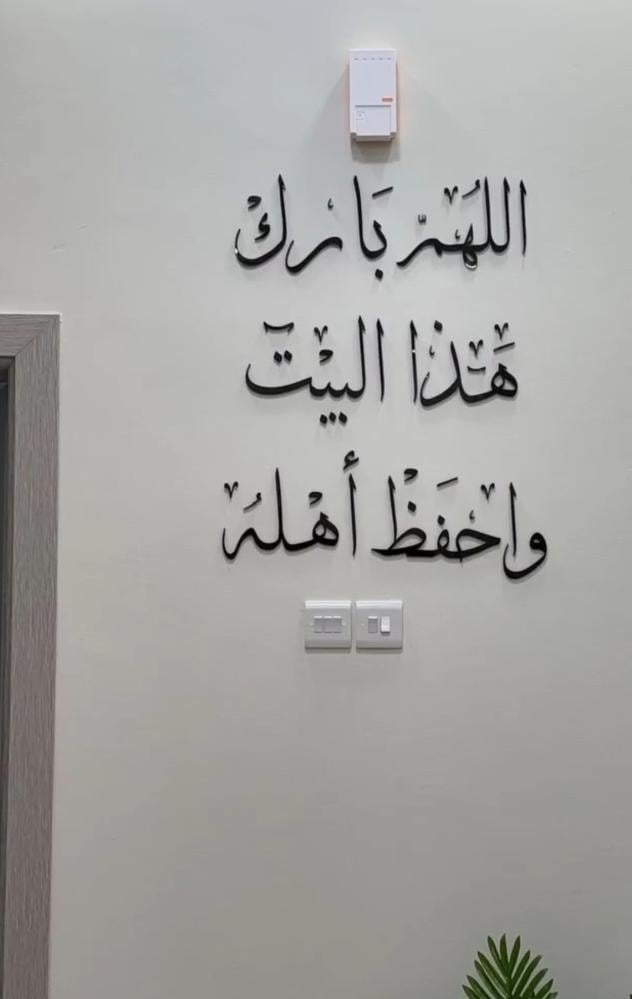 اللهمّ بَارك
هَذا البيت
واحفَظْ أهلهُ